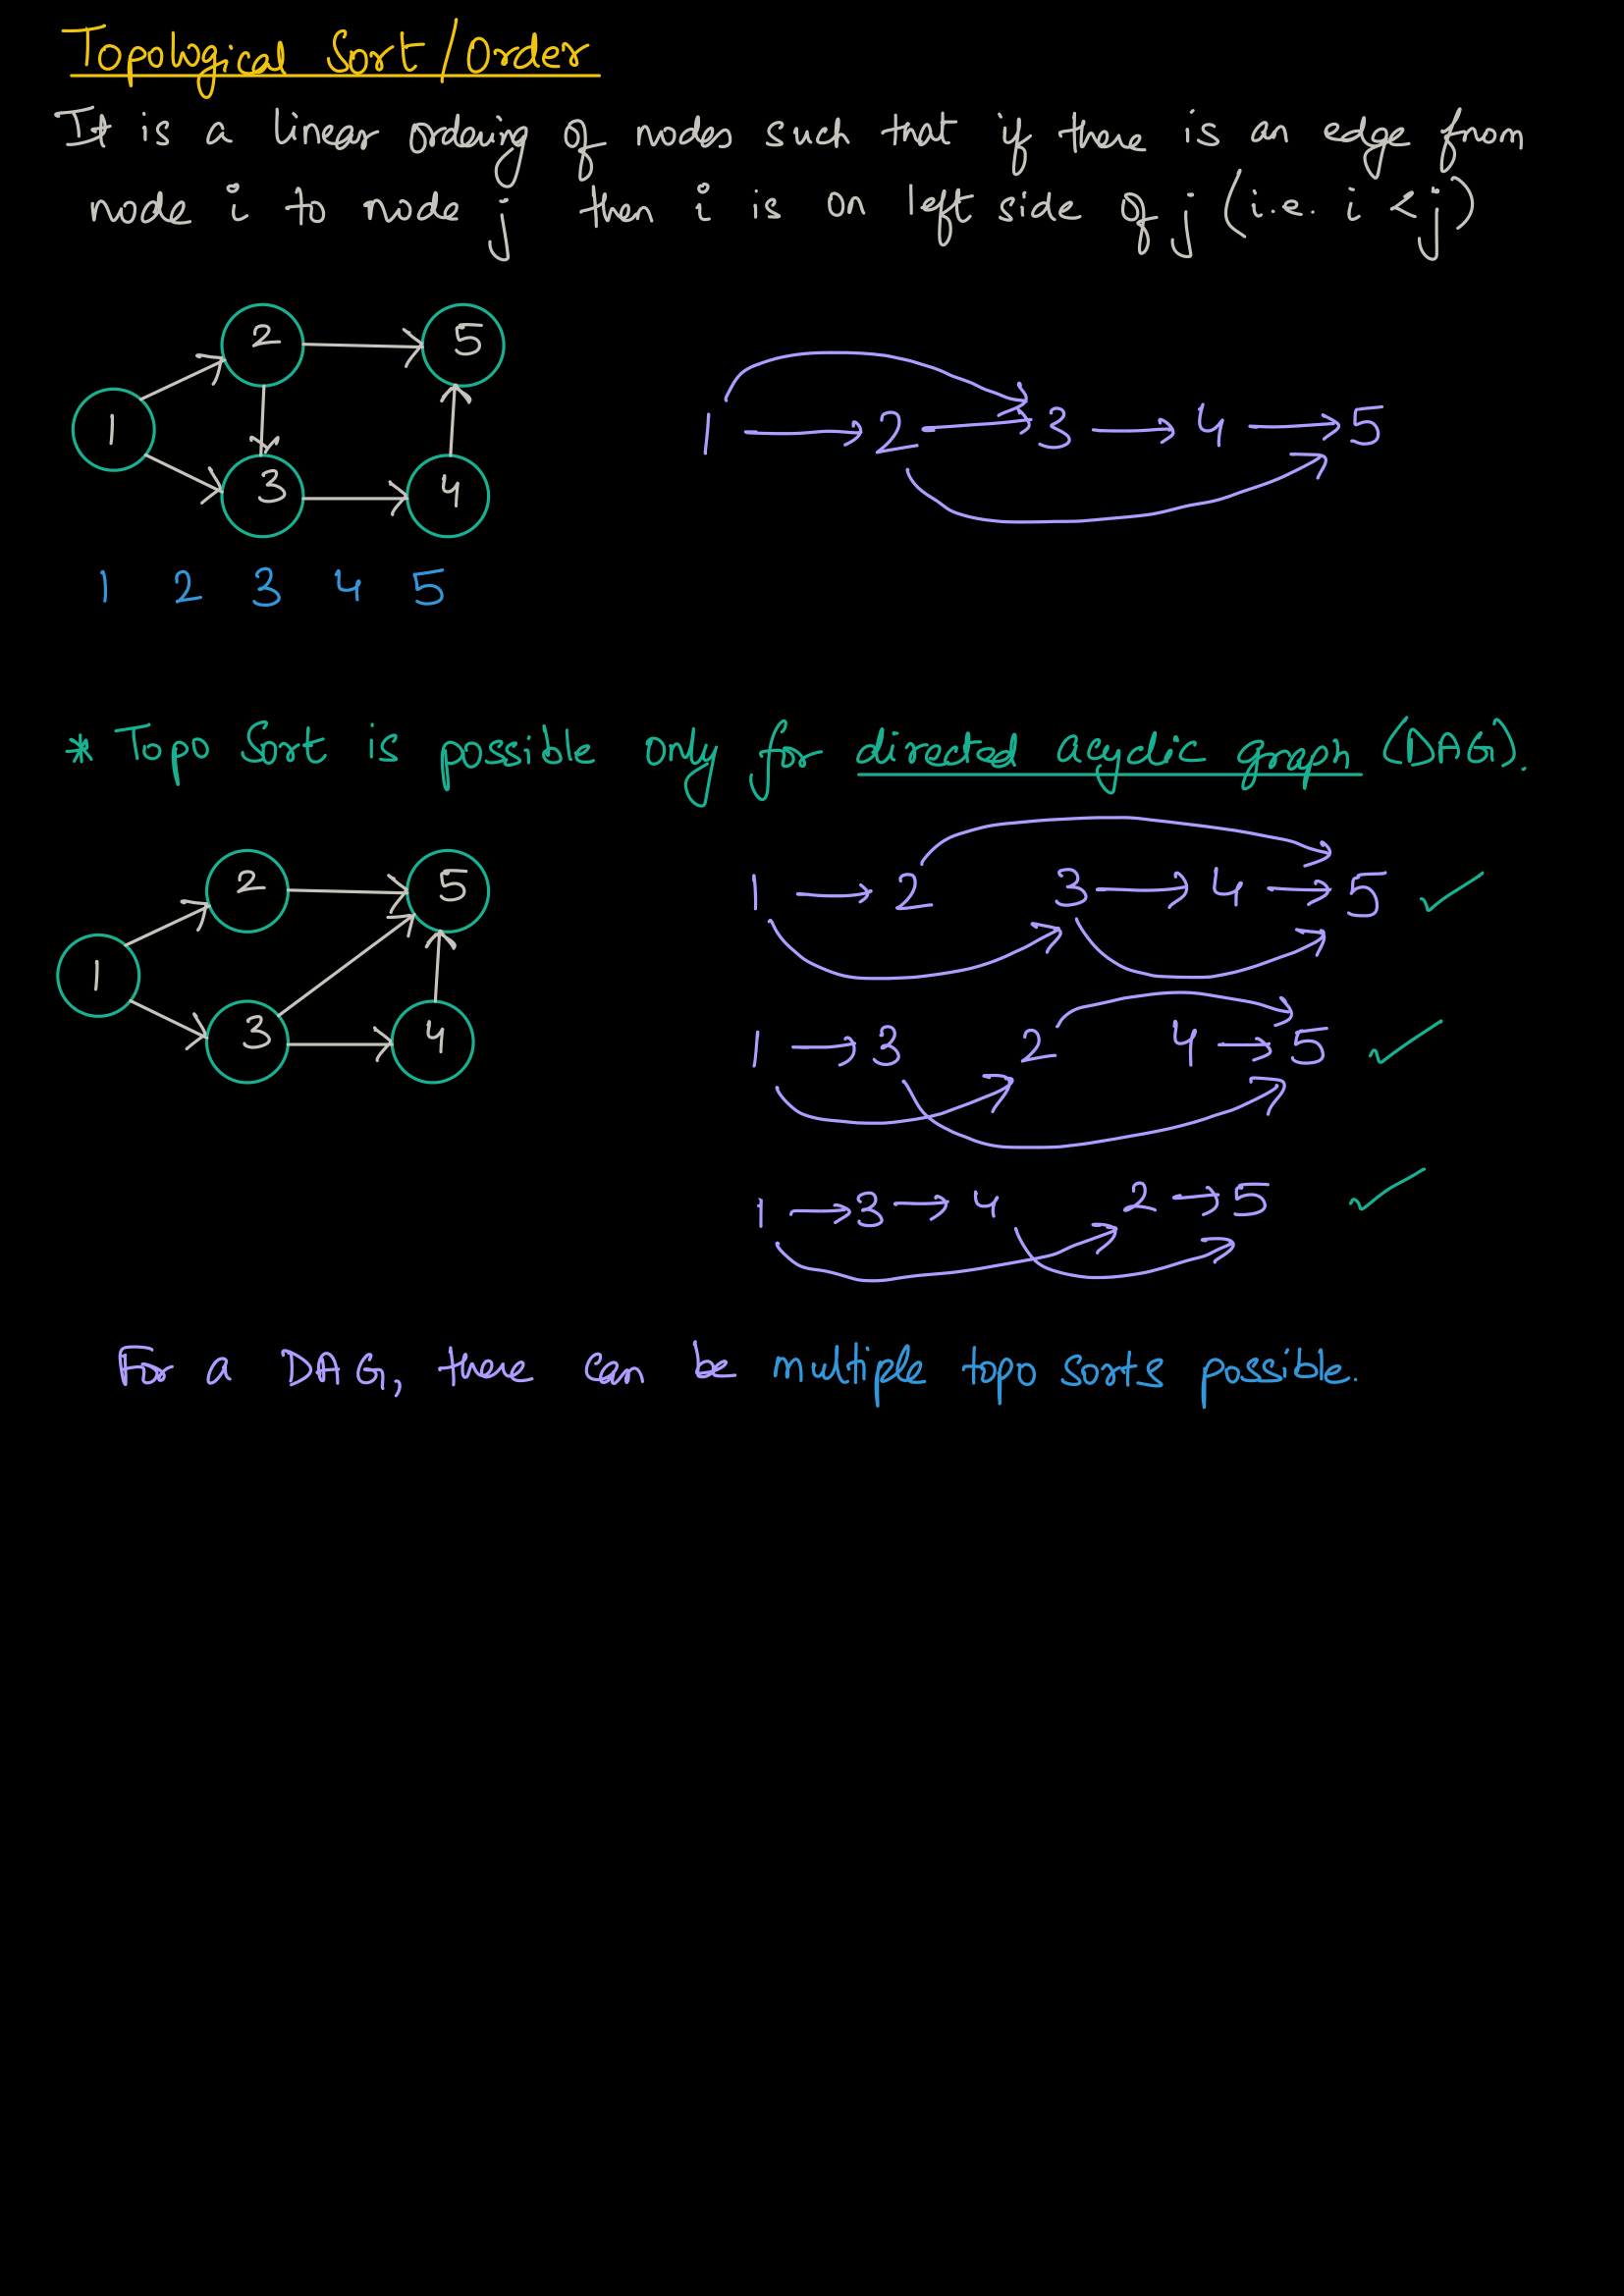 Topological Sort/Order
It is a linear ordering of nodes such that if there is an edge from
node i to node j then i is on left side of j (i.e. i < j)
2 5
1
3 4
1 2 3 4 5
1 2 3 4 5
* Topo Sort is possible only for directed acyclic graph (DAG).
2 5
1
3 4
1 2 3 4 5 ✓
1 3 2 4 5 ✓
1 3 4 2 5 ✓
For a DAG, there can be multiple topo sorts possible.